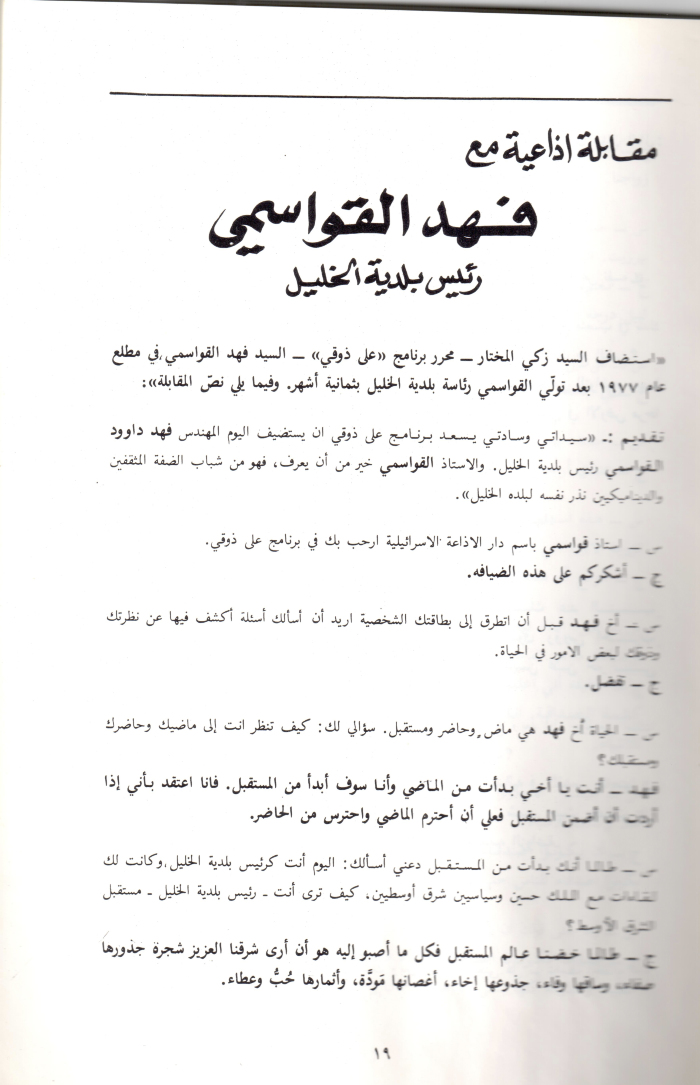 مقابلة اذاعية مع
فهد القواسمي
رئيس بلدية الخليل
«استضاف السيد زكي المختار ــ محرر برنامج «على ذوقي» ــ السيد فهد القواسمي، في مطلع
عام ١٩٧٧ بعد تولّي القواسمي رئاسة بلدية الخليل بثمانية أشهر. وفيما يلي نصّ المقابلة»:
تقديم :ـ «سيداتي وسادتي يسعد برنامج على ذوقي ان يستضيف اليوم المهندس فهد داوود
القواسمي رئيس بلدية الخليل. والاستاذ القواسمي خير من أن يعرف، فهو من شباب الضفة المثقفين
والديناميكيين نذر نفسه لبلده الخليل».
س ــ استاذ قواسمي باسم دار الاذاعة الاسرائيلية ارحب بك في برنامج على ذوقي.
ج ــ أشكركم على هذه الضيافه.
س ــ أخ فهد قبل أن اتطرق إلى بطاقتك الشخصية اريد أن أسألك أسئلة أكشف فيها عن نظرتك
وذوقك لبعض الامور في الحياة.
ج ــ تفضل.
س ــ الحياة أخ فهد هي ماض وحاضر ومستقبل. سؤالي لك: كيف تنظر انت إلى ماضيك وحاضرك
ومستقبلك؟
فهد ــ أنت يا أخي بدأت من الماضي وأنا سوف أبدأ من المستقبل. فانا اعتقد بأني إذا
أردت أن أضمن المستقبل فعلي أن أحترم الماضي واحترس من الحاضر.
س ــ طالما أنك بدأت من المستقبل دعني أسألك: اليوم أنت كرئيس بلدية الخليل، وكانت لك
لقاءات مع الملك حسين وسياسيين شرق أوسطيين، كيف ترى أنت ـ رئيس بلدية الخليل ـ مستقبل
الشرق الأوسط؟
ج ــ طالما خضنا عالم المستقبل فكل ما أصبو إليه هو أن أرى شرقنا العزيز شجرة جذورها
صفاء، وساقها وفاء، جذوعها إخاء، أغصانها مَودَّة، وأثمارها حُبُّ وعطاء.
١٩